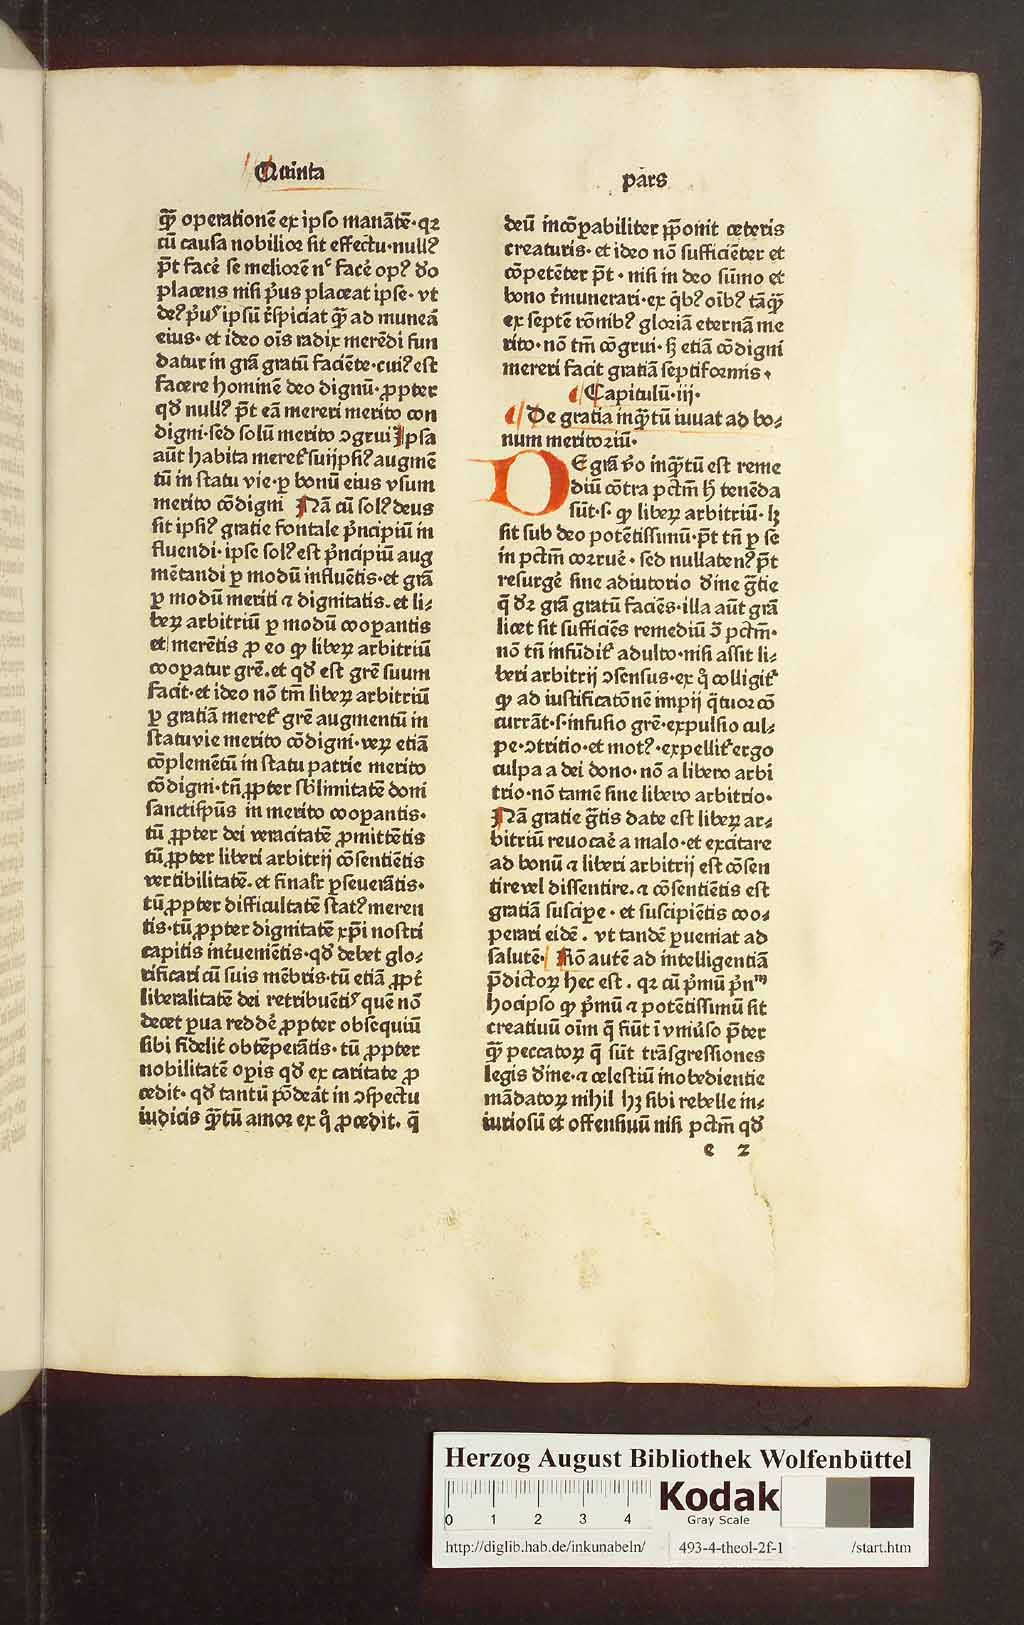 Quinta
pars
ꝙ̃ operationē ex ipso manātē· qꝛ
cū causa nobilior sit effectu· nullꝰ
p̄t facē se meliorē nͨ facē opꝰ do
placens nisi p̓us placeat ipse· vt
deꝰ p̓uˢ ipsū r̓spiciat ꝙ̃ ad munea
eius· et ideo oīs radix merēdi fun
datur in grā gratū faciēte· cuiꝰ est
facere hominē deo dignū· ꝓpter
qd̓ nullꝰ p̄t eā mereri merito con
digni· sed solū merito ɔgrui Ipsa
aūt habita meret᷑ suijpsiꝰ augmē
tū in statu vie· ꝑ bonū eius vsum
merito cōdigni Nā cū solꝰ deus
sit ipsiꝰ gratie fontale p̓ncipiū in
fluendi· ipse solꝰ est p̓ncipiū aug
mētandi ꝑ modū influētis· et grā
ꝑ modū meriti ⁊ dignitatis. et li⸗
beꝝ arbitriū ꝑ modū cooꝑantis
et merētis ꝓ eo ꝙ libeꝝ arbitriū
cooꝑatur grē. et qd̓ est grē suum
facit· et ideo nō tm̄ libeꝝ arbitriū
ꝑ gratiā meret᷑ grē augmentū in
statuvie merito cōdigni· veꝝ etiā
cōplementū in statu patrie merito
cōdigni· tn̄ ꝓpter sb̓limitatē doni
sanctisp̄us in merito cooꝑantis·
tū ꝓpter dei veracitatē ꝓmittētis
tū ꝓpter liberi arbitrij cōsentiētis
vertibilitatē. et finalr̓ ꝑseuerātis·
tū ꝓpter difficultatē statꝰ meren
tis· tū ꝓpter dignitatē xp̄i nostri
capitis int̓ueniētis· qd̓ debet glo⸗
rificari cū suis mēbris· tū etiā ꝓpt̓
liberalitatē dei retribuētiˢ quē nō
decet ꝑua reddē ꝓpter obsequiū
sibi fidelit̓ obtēꝑātis· tū ꝓpter
nobilitatē oꝑis qd̓ ex caritate ꝓ
cedit· qd̓ tantū pōdeāt in ɔspectu
iudicis ꝙ̃tū amor ex q̊ ꝓcedit. q̄
deū incōꝑabiliter p̄ponit ceteris
creaturis· et ideo nō sufficiēter et
cōpetēter p̄t· nisi in deo sūmo et
bono r̓munerari· ex q̓bꝰ oībꝰ tāꝙ̃
ex septē rōnibꝰ gloriā eternā me
rito· nō tm̄ cōgrui· ꝉꝫ etiā cōdigni
mereri facit gratiā septiformis·
Capitulū· iij·
De gratia inꝙ̃tū iuuat ad bo⸗
num meritoriū·
DE grā v̓o inꝙ̃tū est reme
diū cōtra pctm̄ h̓ tenēda
sūt· s· ꝙ libeꝝ arbitriū· lꝫ
sit sub deo potētissimū· p̄t tn̄ ꝑ se
in pctm̄ corruē· sed nullatenꝰ p̄t
resurgē sine adiutorio d̓ine gr̄tie
q̄ d̓ꝛ grā gratū faciēs· illa aūt grā
licet sit sufficiēs remediū ɔ̄ pctm̄·
nō tn̄ infūdit᷑ adulto· nisi assit li⸗
beri arbitrij ɔsensus· ex q̊ colligit᷑
ꝙ ad iustificatōnē impij q̄tuor cō
currāt· s· infusio grē· expulsio cul⸗
pe· ɔtritio· et motꝰ· expellit᷑ ergo
culpa a dei dono· nō a libero arbi
trio· nō tamē sine libero arbitrio·
Nā gratie gr̄tis date est libeꝝ ar⸗
bitriū reuocaē a malo· et excitare
ad bonū ⁊ liberi arbitrij est cōsen
tirevel dissentire. ⁊ cōsentiētis est
gratiā suscipe· et suscipiētis coo⸗
perari eidē. vt tandē ꝑueniat ad
salutē· Rō autē ad intelligentiā
p̄dictoꝝ hec est. qꝛ cū p̓mū p̓nᵐ
hocipso ꝙ p̓mū ⁊ potētissimū sit
creatiuū oīm q̄ fiūt ī vniūso p̄ter
ꝙ̃ peccatoꝝ q̄ sūt trāsgressiones
legis d̓ine· ⁊ celestiū inobedientie
mādatoꝝ nihil hꝫ sibi rebelle in⸗
iuriosū et offensiuū nisi pctm̄ qd̓
e 2
Herzog August Bibliothek Wolfenbüttel
0 1 2 3 4
Kodak
Gray Scale
http://diglib.hab.de/inkunabeln/ 493-4-theol-2f-1 /start.htm